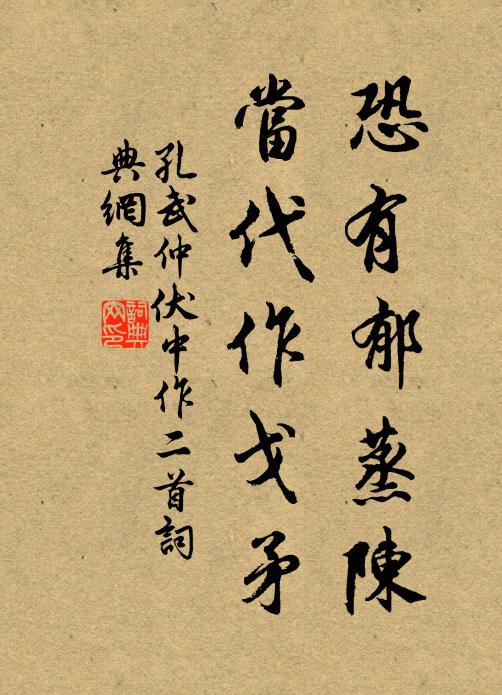 恐有郁蒸陳
當代作戈矛
孔武仲伏中作二首詞
典網集
詞典網印